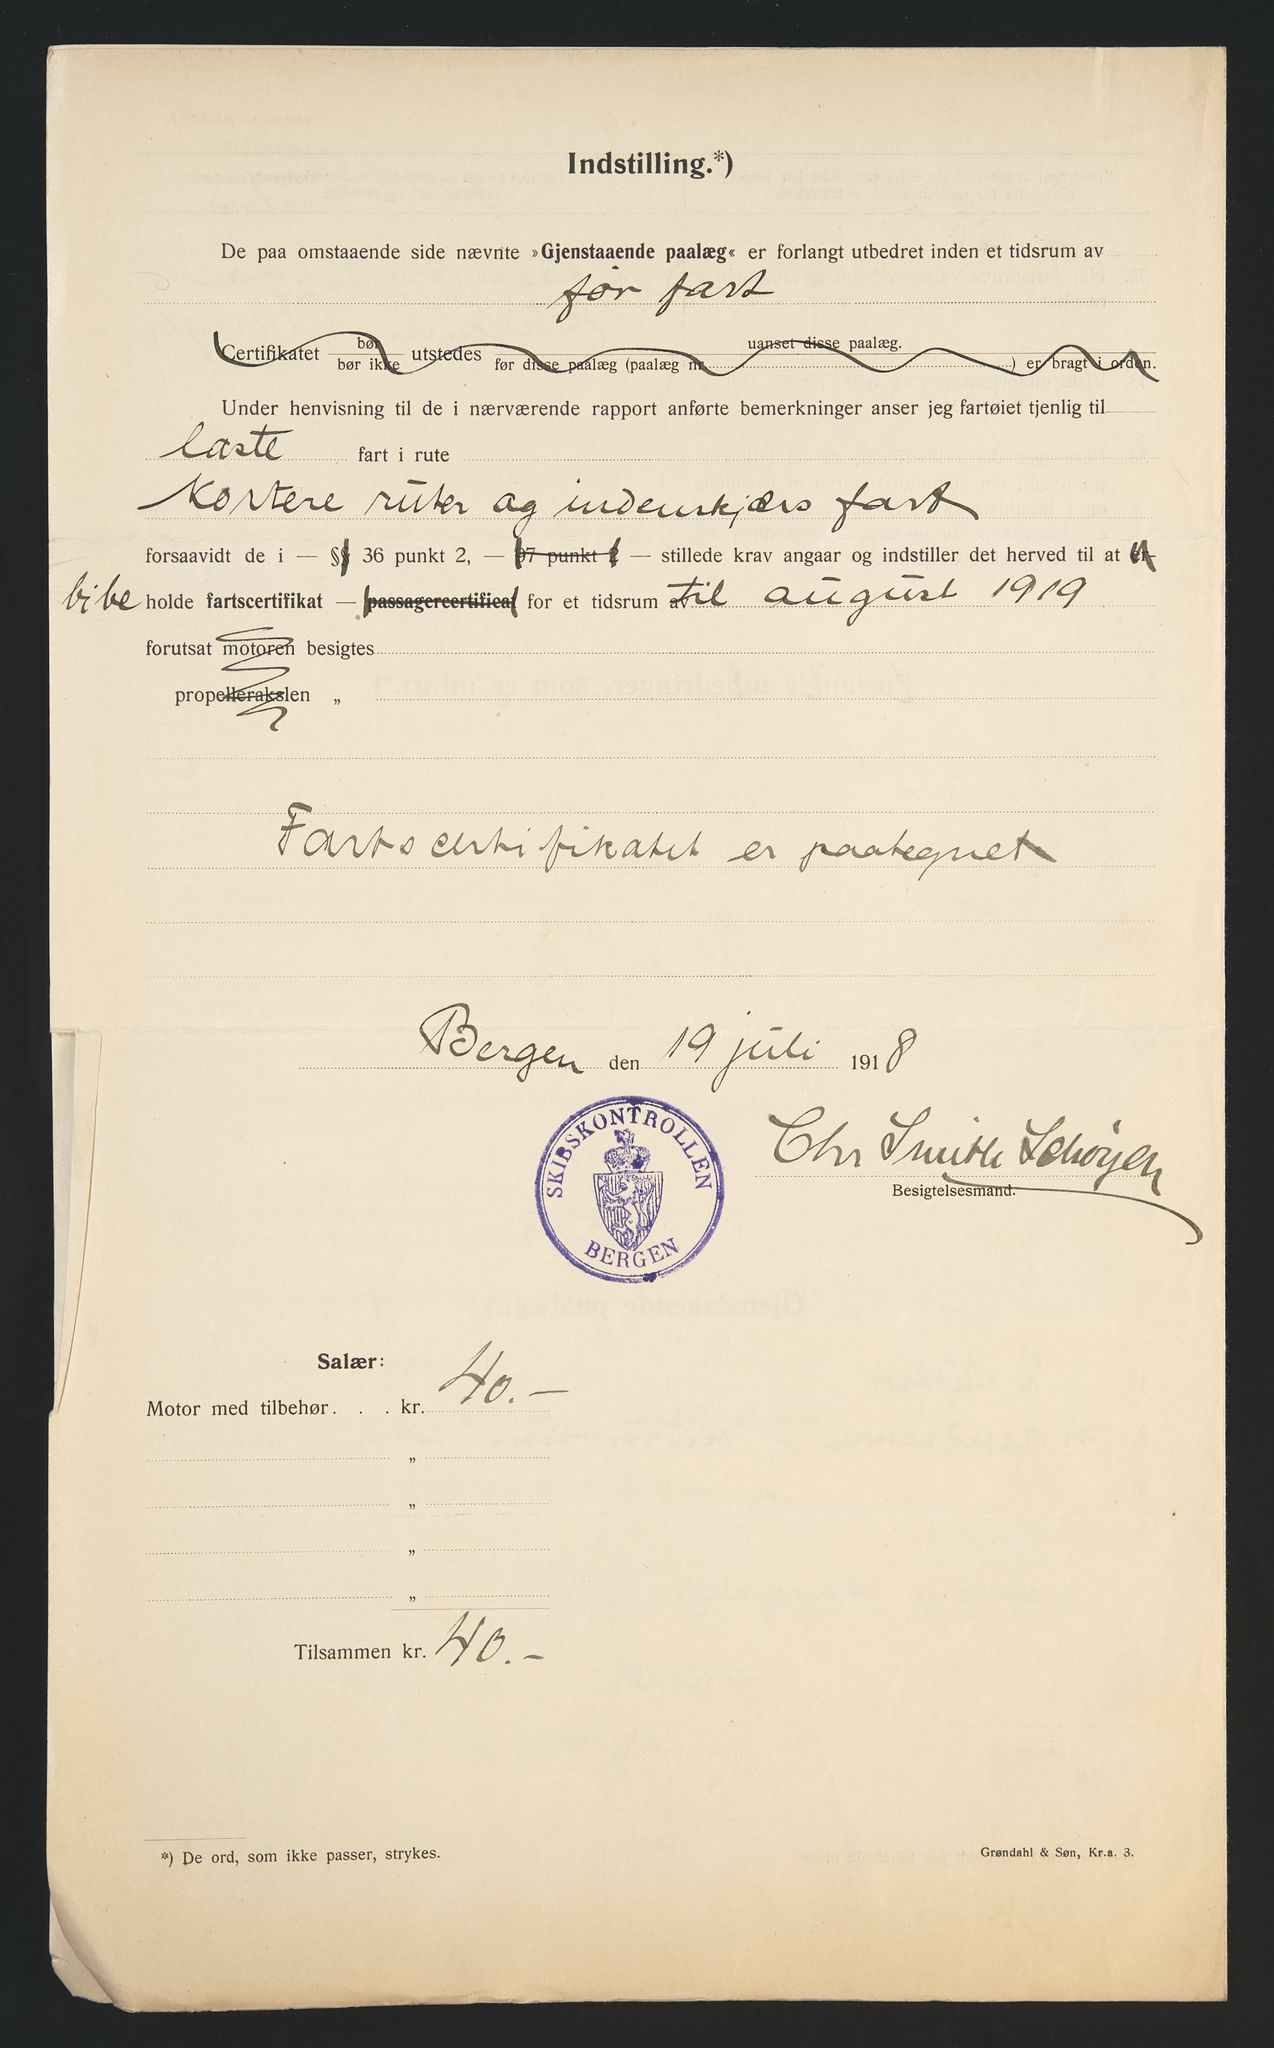 Indstilling.*)
De paa omstaaende side nævnte »Gjenstaaende paalæg« er forlangt utbedret inden et tidsrum av
før fart
Certifikatet bør / bør ikke utstedes uanset disse paalæg. / før disse paalæg (paalæg nr. ) er bragt i orden.
Under henvisning til de i nærværende rapport anførte bemerkninger anser jeg fartøiet tjenlig til
laste fart i rute
Kortere ruter og indenskjærs fart
forsaavidt de i — §§ 36 punkt 2, — 97 punkt 2 — stillede krav angaar og indstiller det herved til at er-
bibe holde fartscertifikat — passagercertificat for et tidsrum av til august 1919
forutsat motoren besigtes
propellerakslen „
Fartscertifikatet er paategnet
Bergen den 19 juli 1918
SKIBSKONTROLLEN
BERGEN
Chr Smith Schøyen
Besigtelsesmand.
Salær:
Motor med tilbehør. . . kr. 40.-
„
„
„
„
Tilsammen kr. 40.-
*) De ord, som ikke passer, strykes.
Grøndahl & Søn, Kr.a. 3.